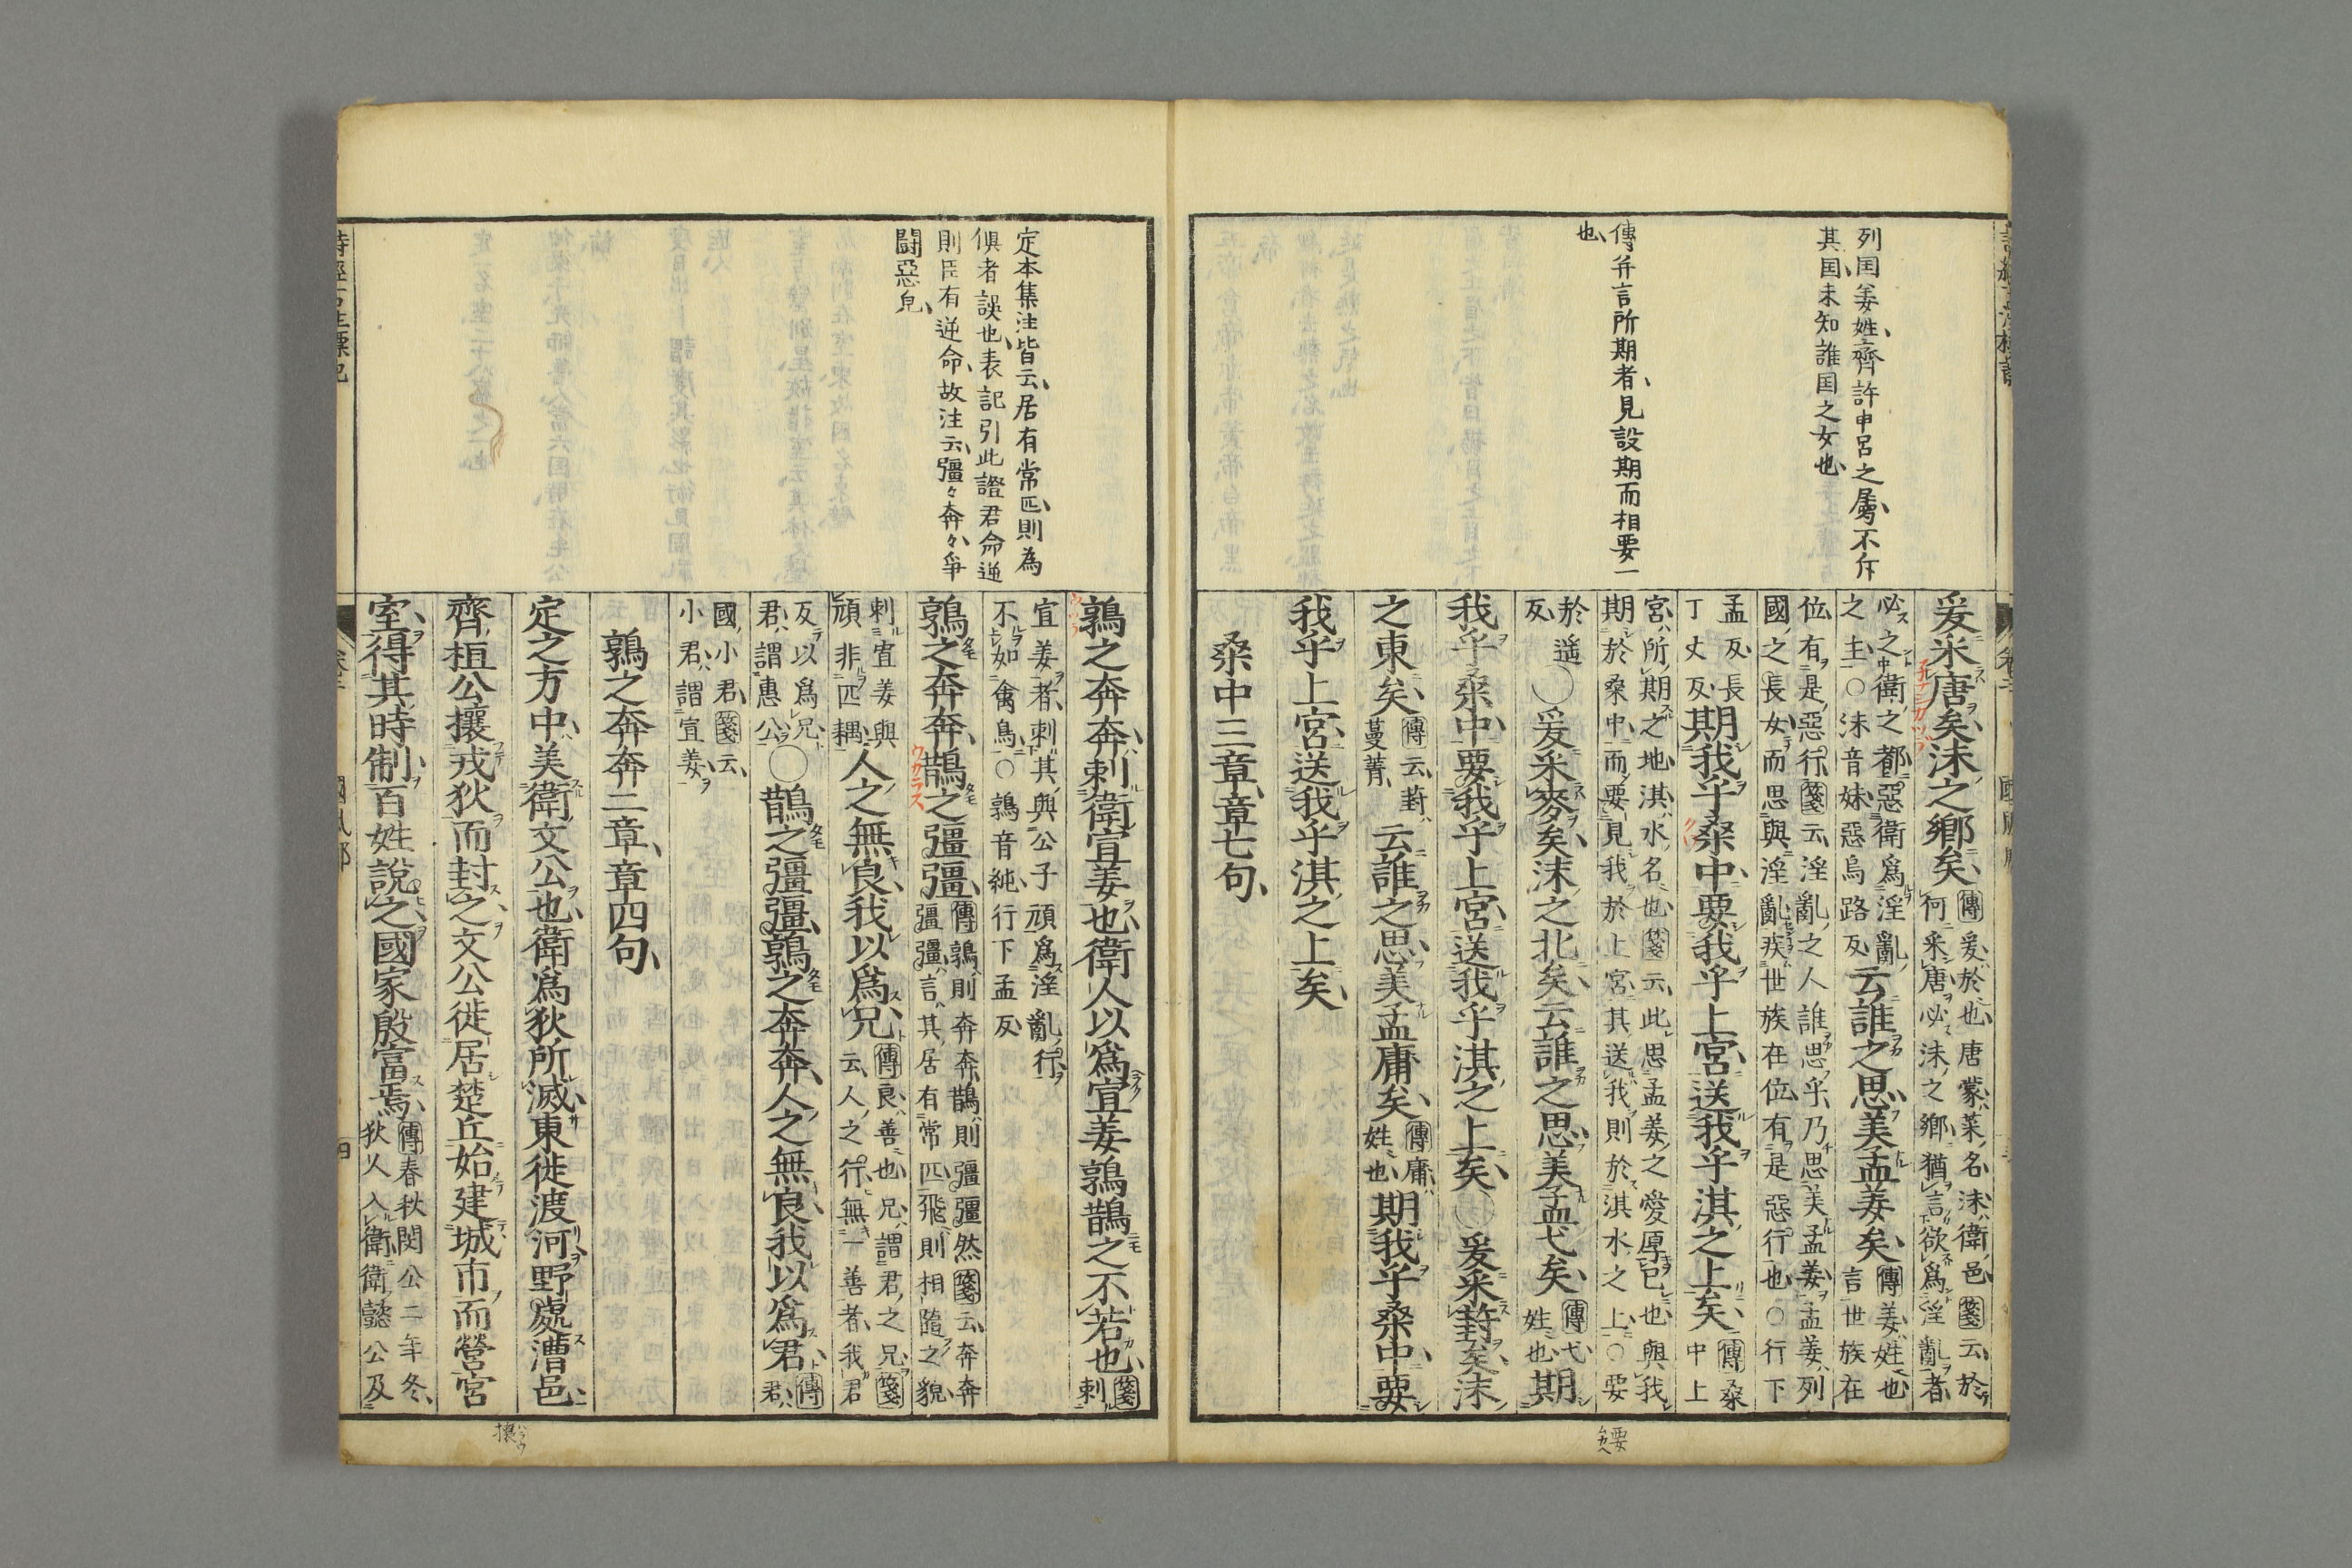 列国姜姓齊許申呂之屬不斥
其国未知誰国之女也
傳并言所期者見設期而相要一
也
爰采唐矣沬之鄉矣
傳爰於也唐蒙菜名沬衛邑箋云於
何采唐必沬之鄉猶言欲爲淫亂者
必之衛之都惡衛爲淫亂
之主○沬音妹惡烏路反
云誰之思美孟姜矣
傳姜姓也
言世族在
位有是惡行箋云淫亂之人誰思乎乃思美孟姜孟姜列
國之長女而思與淫亂疾世族在位有是惡行也○行下
孟反長
丁丈反
期我乎桑中要我乎上宮送我乎淇之上矣
傳桑
中上
宮所期之地淇水名也箋云此思孟姜之愛厚已也與我
期於桑中而要見我於上宮其送我則於淇水之上○要
於遥
反
○爰采麥矣沬之北矣云誰之思美孟弋矣
傳弋
姓也
期
我乎桑中要我乎上宮送我乎淇之上矣○爰采葑矣沬
之東矣
傳云葑
蔓菁
云誰之思美孟庸矣
傳庸
姓也
期我乎桑中要
我乎上宮送我乎淇之上矣
桑中三章章七句
要
定本集注皆云居有常匹則為
俱者誤也表記引此證君命逆
則臣有逆命故注云彊々奔々爭
闘惡皃
鶉之奔奔刺衛宣姜也衛人以爲宣姜鶉鵲之不若也
箋
刺
宣姜者刺其與公子頑爲淫亂行
不如禽鳥○鶉音純行下孟反
鶉之奔奔鵲之彊彊
傳鶉則奔奔鵲則彊彊然箋云奔奔
彊彊言其居有常匹飛則相隨之貌
刺宣姜與
頑非匹耦
人之無良我以爲兄
傳良善也兄謂君之兄箋
云人之行無一善者我君
反以爲兄
君謂惠公
○鵲之彊彊鶉之奔奔人之無良我以爲君
傳
君
國小君箋云
小君謂宣姜
鶉之奔奔二章章四句
定之方中美衛文公也衛爲狄所滅東徙渡河野處漕邑
齊桓公攘戎狄而封之文公徙居楚丘始建城市而營宮
室得其時制百姓說之國家殷富焉
傳春秋閔公二年冬
狄人入衛衛懿公及
攘